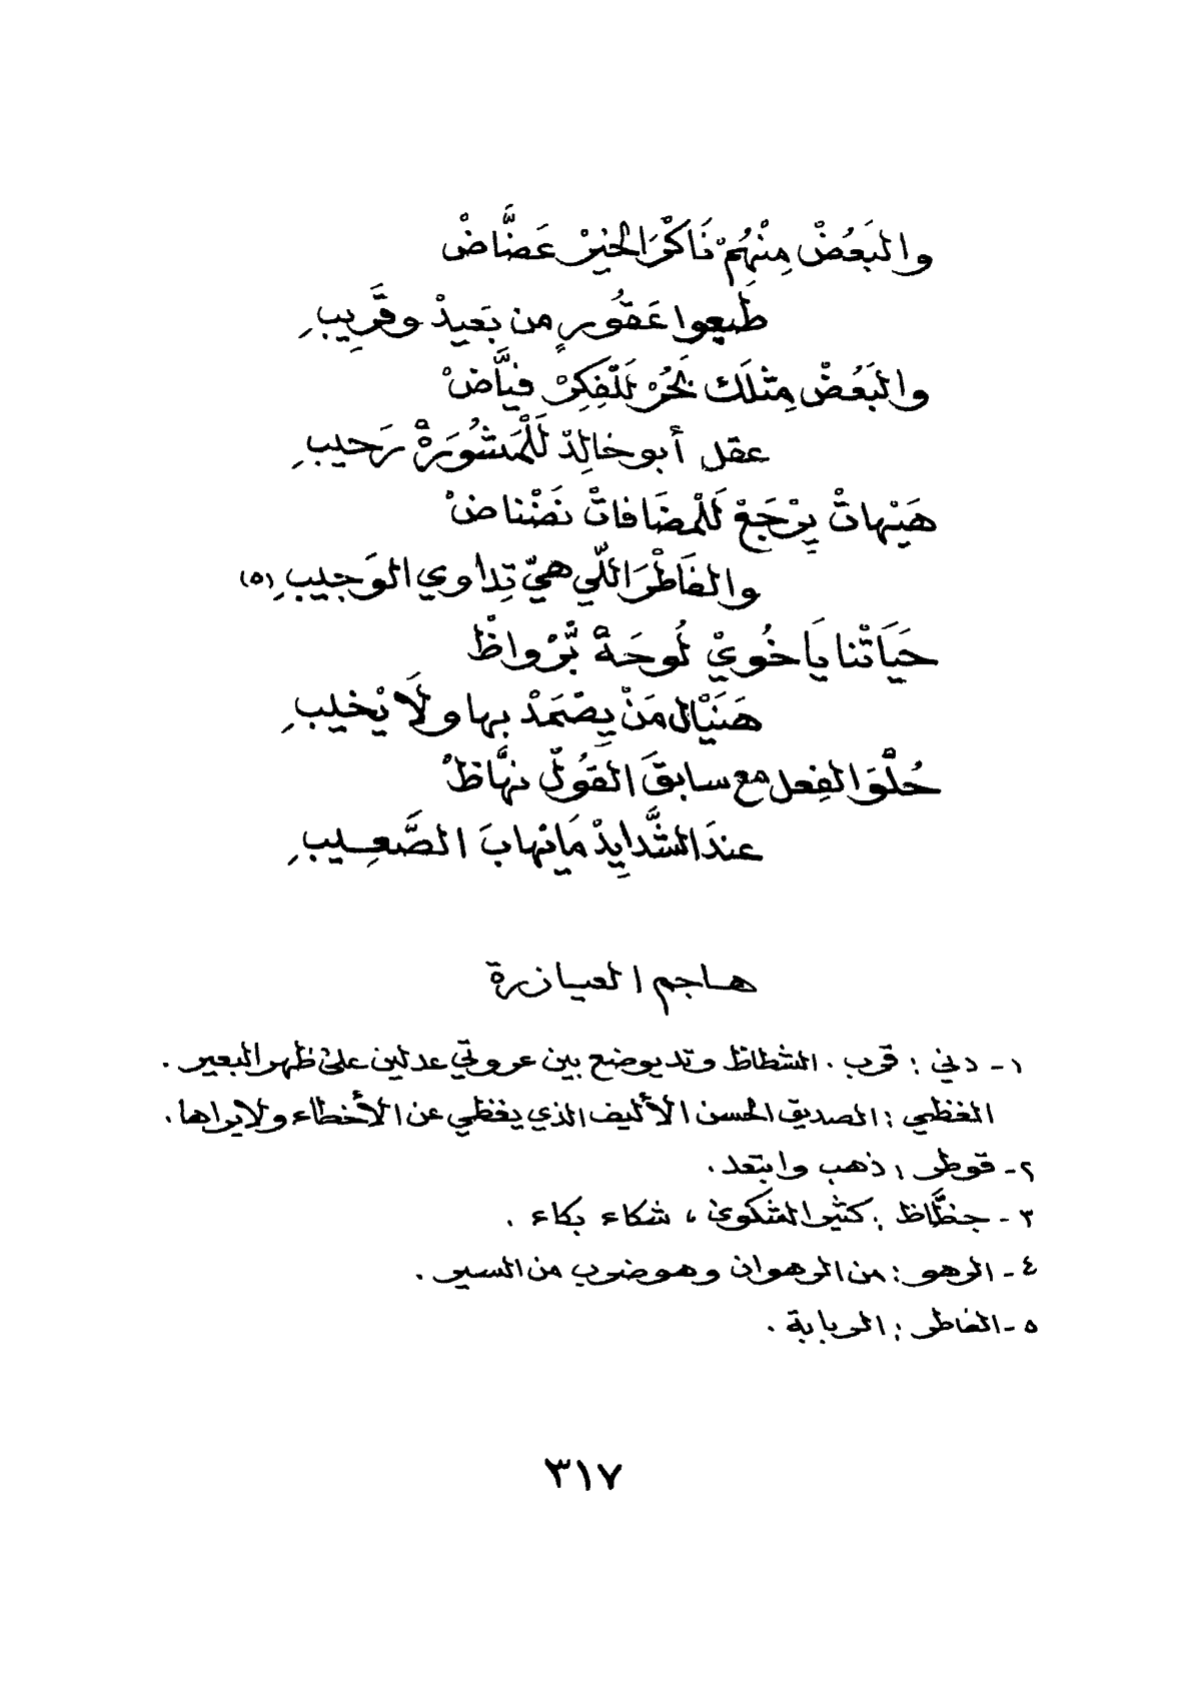 والبَعُضْ مِنْهُمْ نَاكْرَ الخيرْ عَضَّاضْ
طَبيعوا عَقوُرٍ من بَعيدْ وقَرِيبِ
والبَعُضْ مِثلَك بَحُرْ لَلْفِكِرْ فيَّاضْ
عقل أبو خالِدْ لَلْمَشوُرَةْ رَحيبِ
هَيْهاتْ يِرْجَعْ لَلْمضَافاتْ نَضْناضْ
والفَاطْرَ اللّي هيّ تِداوي الوَجيبِ (٥)
حَيَاتْنا يَا خُويْ لُوحَةْ بَّرْواظْ
هَنَيْال مَنْ يِصْمَدْ بها ولَا يْخيبِ
حُلْوَ الفِعل مع سابقَ القَولْ نهَّاظْ
عندَ الشَّدايِدْ مَايْهابَ الصَّعِيبِ
هاجم العيازرة
١- دني : قرب . الشظاظ وتد يوضع بين عروتي عدلين على ظهر البعير .
الغظي : الصديق الحسن الأليف الذي يغظي عن الأخطاء ولا يراها .
٢- قوطر : ذهب وابتعد .
٣- جظَّاظ : كثير الشكوى ، شكاء بكاء .
٤- الرهو : من الرهوان وهو ضرب من السير .
٥- الفاطر : الربابة .
٣١٧